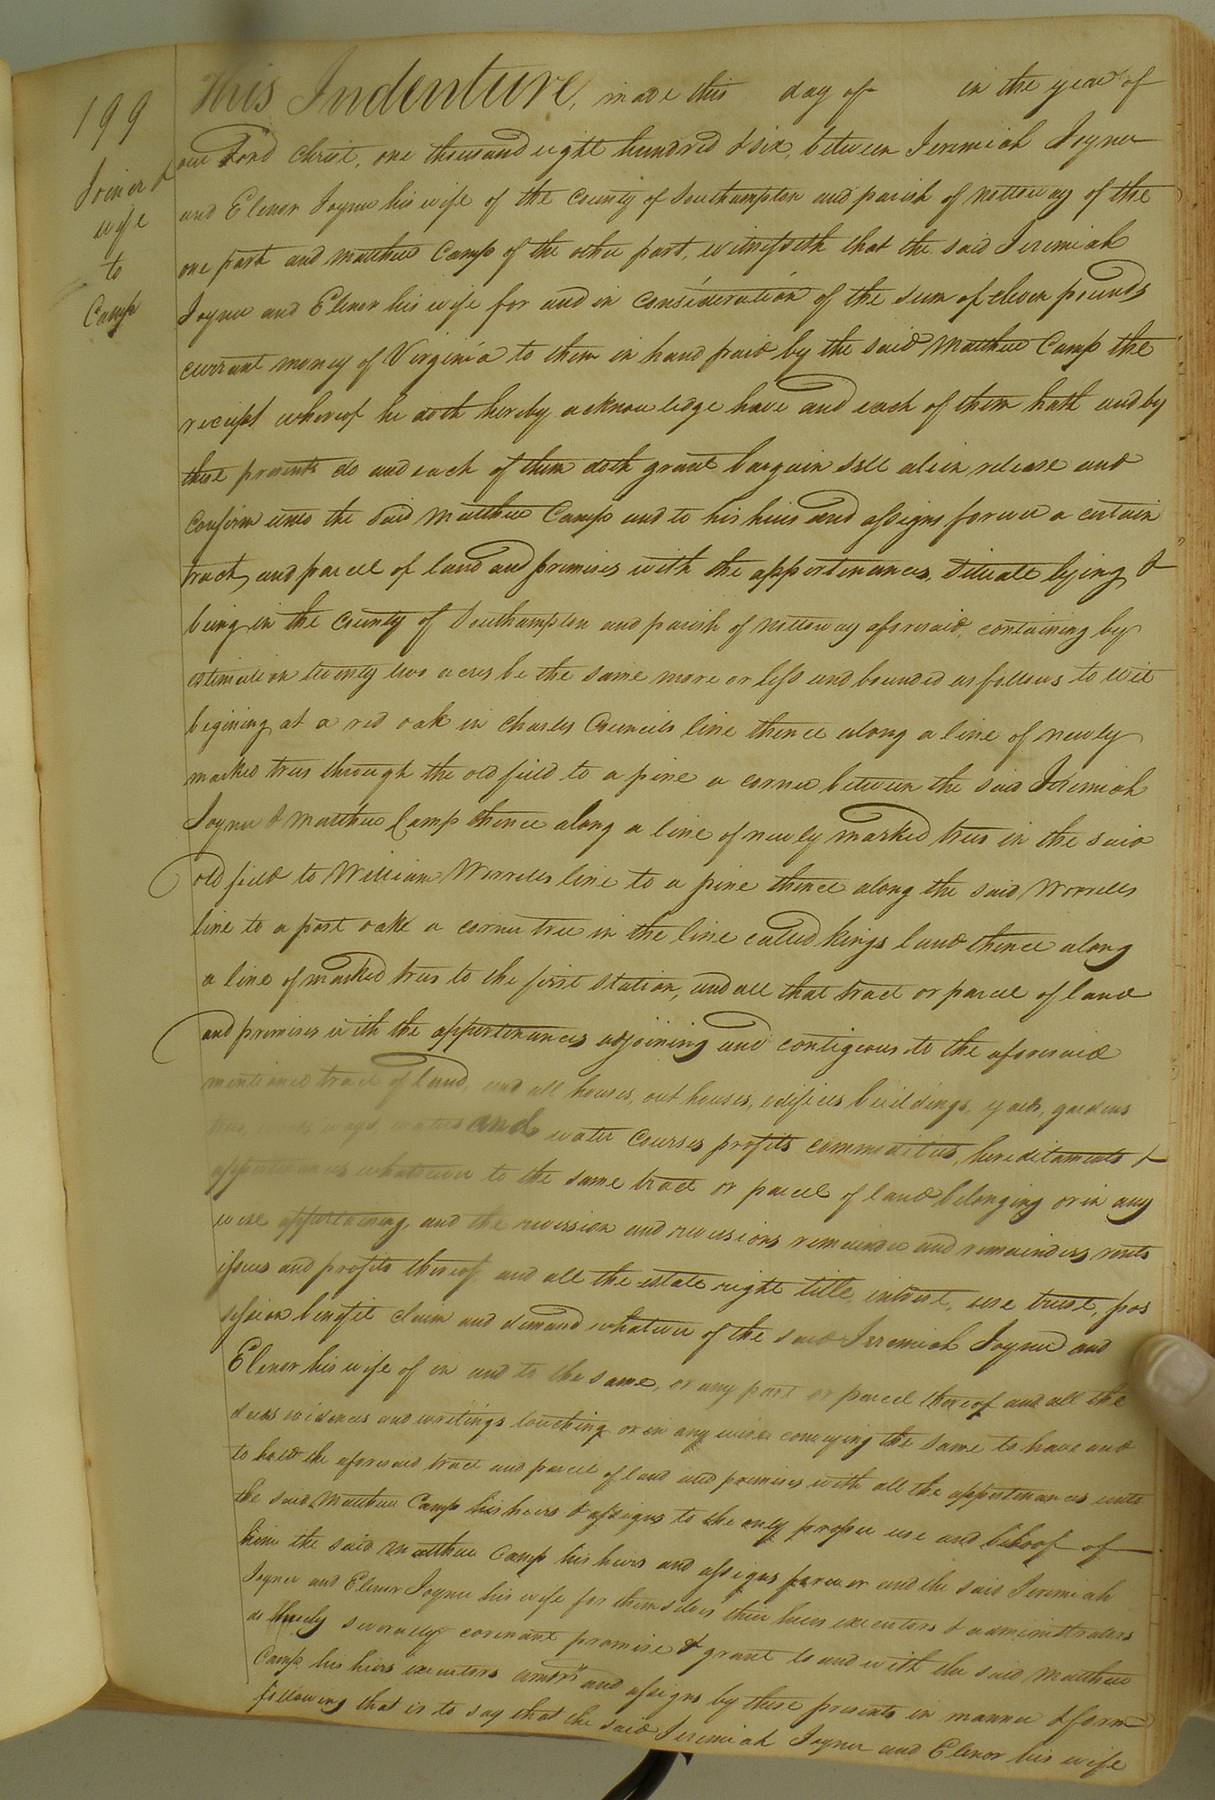 199
Joiner &
wife
to
Camp
This Indenture, made this day of in the year of
our Lord Christ, one thousand eight hundred & six, between Jeremiah Joyner
and Elenor Joyner his wife of the County of Southampton and parish of nottoway of the
one part and Matthew Camp of the other part, witnesseth that the said Jeremiah
Joyner and Elenor his wife for and in consideration of the sum of eleven pounds
currant money of Virginia to them in hand paid by the said Matthew Camp the
receipt whereof he doth hereby acknowledge have and each of them hath and by
these presents do and each of them doth grant bargain sell alien release and
confirm unto the said Matthew Camp and to his heirs and assigns forever a certain
tract, and parcel of land and premises with the appertenances, situate lying &
being in the County of Southampton and parish of nottoway aforesaid, containing by
estimation twenty two acres be the same more or less and bounded as follows to wit
begining at a red oak in Charles Councils line thence along a line of newly
marked trees through the old field to a pine a corner between the said Jeremiah
Joyner & Matthew Camp thence along a line of newly marked trees in the said
old field to William Worrells line to a pine thence along the said Worrells
line to a post oake a corner tree in the line called Kings land thence along
a line of marked trees to the first station, and all that tract or parcel of land
and premises with the appertenances adjoining and contigeous to the aforesaid
mentioned tract of land, and all houses, out houses, edifices buildings, yards, gardens
ways, waters and water courses profits commodities, hereditaments &
appertenances whatever to the same tract or parcel of land belonging or in any
wise appertaining, and the revession and revesions remainder and remainders, rents
issues and profits thereof, and all the estate right title, intrest, use trust, pos
session benefit claim and demand whatever of the said Jeremiah Joyner and
Elenor his wife of in and to the same, or any part or parcel thereof and all the
deeds evidences and writings touching or in any wise conveying the same to have and
to hold the aforesaid tract and parcel of land and premises with all the appertenances unto
the said Matthew Camp his heirs & assigns to the only proper use and behoof of
him the said Matthew Camp his heirs and assigns forever and the said Jeremiah
Joyner and Elenor Joyner his wife for themselves their heirs executors & administrators
do severally covenant promise & grant to and with the said Matthew
Camp his heirs executors admrs and assigns by these presents in manner & form
following that is to say that the said Jeremiah Joyner and Elenor his wife